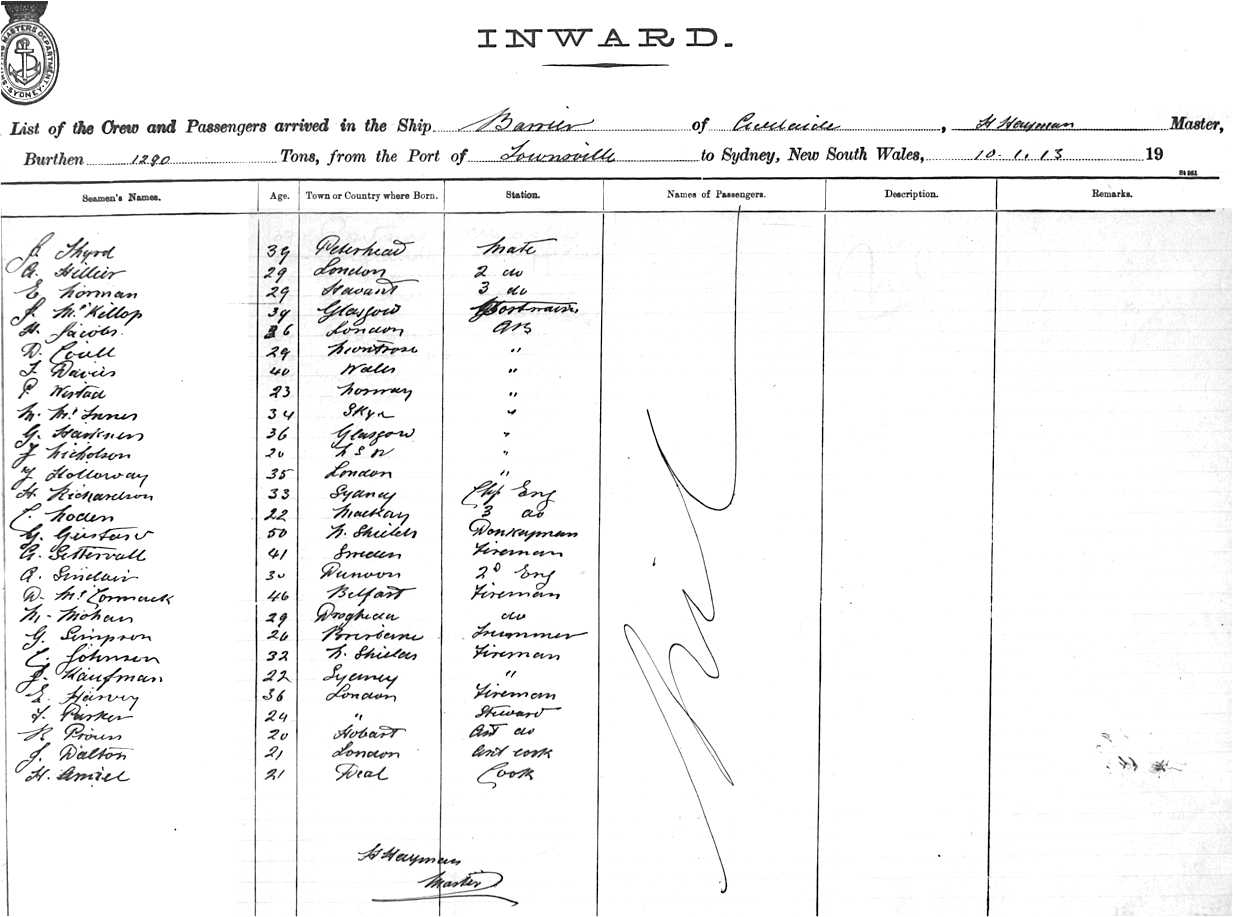 SHIPPING MASTERS DEPARTMENT SYDNEY
INWARD.
List of the Crew and Passengers arrived in the Ship Barrier of Adelaide, H Hayman Master,
Burthen 1290 Tons, from the Port of Townsville to Sydney, New South Wales, 10.1.13 19
Seamen's Names. Age. Town or Country where Born. Station. Names of Passengers. Description. Remarks.
J. Thyrd 39 Peterhead Mate
A. Hillier 29 London 2 do
E Norman 29 Havant 3 do
J. McKillop 39 Glasgow
H. Jacobs. 36 London AB
D. Coull 29 Montrose "
J. Davies 40 Wales "
P. Westad 23 Norway "
M. McInnes 34 Skye "
G. Harkness 36 Glasgow "
J Nicholson 20 NSW "
J Holloway 35 London "
H. Richardson 33 Sydney Chf Eng
C. Noden 22 Mackay 3 do
G. Gustavr 50 N. Shields Donkeyman
G. Settervall 41 Sweden Fireman
A. Sinclair 30 Dunoon 2d Eng
D. McCormack 46 Belfast Fireman
N. Mohan 29 Drogheda do
G. Simpson 20 Brisbane Trimmer
C. Johnson 32 N. Shields Fireman
J. Kaufman 22 Sydney "
E. Harvey 36 London Fireman
F. Parker 24 " Steward
R Prouse 20 Hobart Asst do
J. Dalton 21 London Asst cook
H. Amiel 21 Deal Cook
Nil
H Hayman
Master